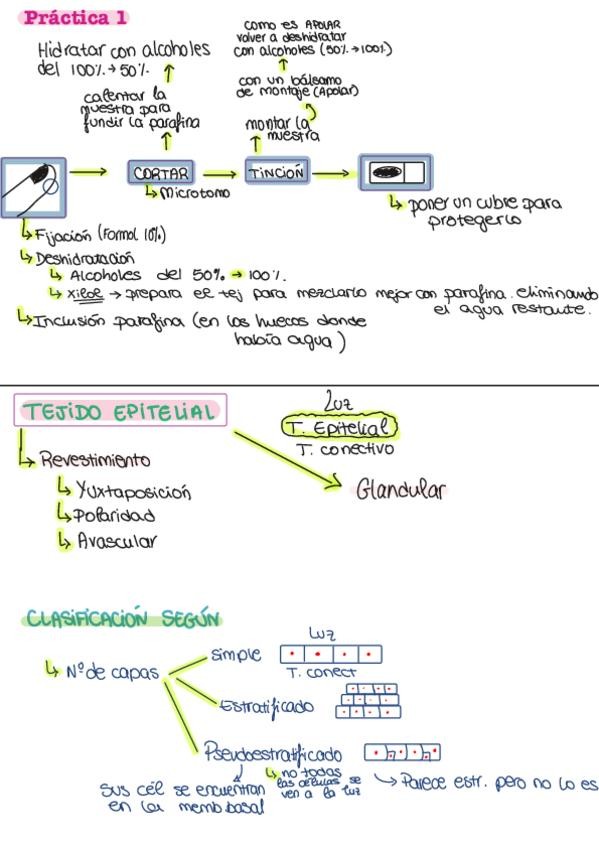 Práctica 1
Hidratar con alcoholes
del 100% → 50%.
calentar la
muestra para
fundir la parafina
como es APOLAR
volver a deshidratar
con alcoholes (50% → 100%)
con un bálsamo
de montaje (Apolar)
montar la
muestra
CORTAR
Microtomo
TINCIÓN
poner un cubre para
protegerlo
Fijación (Formol 10%)
Deshidratación
Alcoholes del 50% → 100%.
xilol → prepara el tej para mezclarlo mejor con parafina. eliminando
el agua restante.
Inclusión parafina (en los huecos donde
había agua)
TEJIDO EPITELIAL
Luz
T. Epitelial
T. conectivo
Revestimiento
Yuxtaposición
Polaridad
Avascular
Glandular
CLASIFICACIÓN SEGÚN
Nº de capas
Simple
Luz
T. conect
Estratificado
Pseudoestratificado
no todas
las células se
ven a la luz
Sus cél se encuentran
en la memb basal
Parece estr. pero no lo es